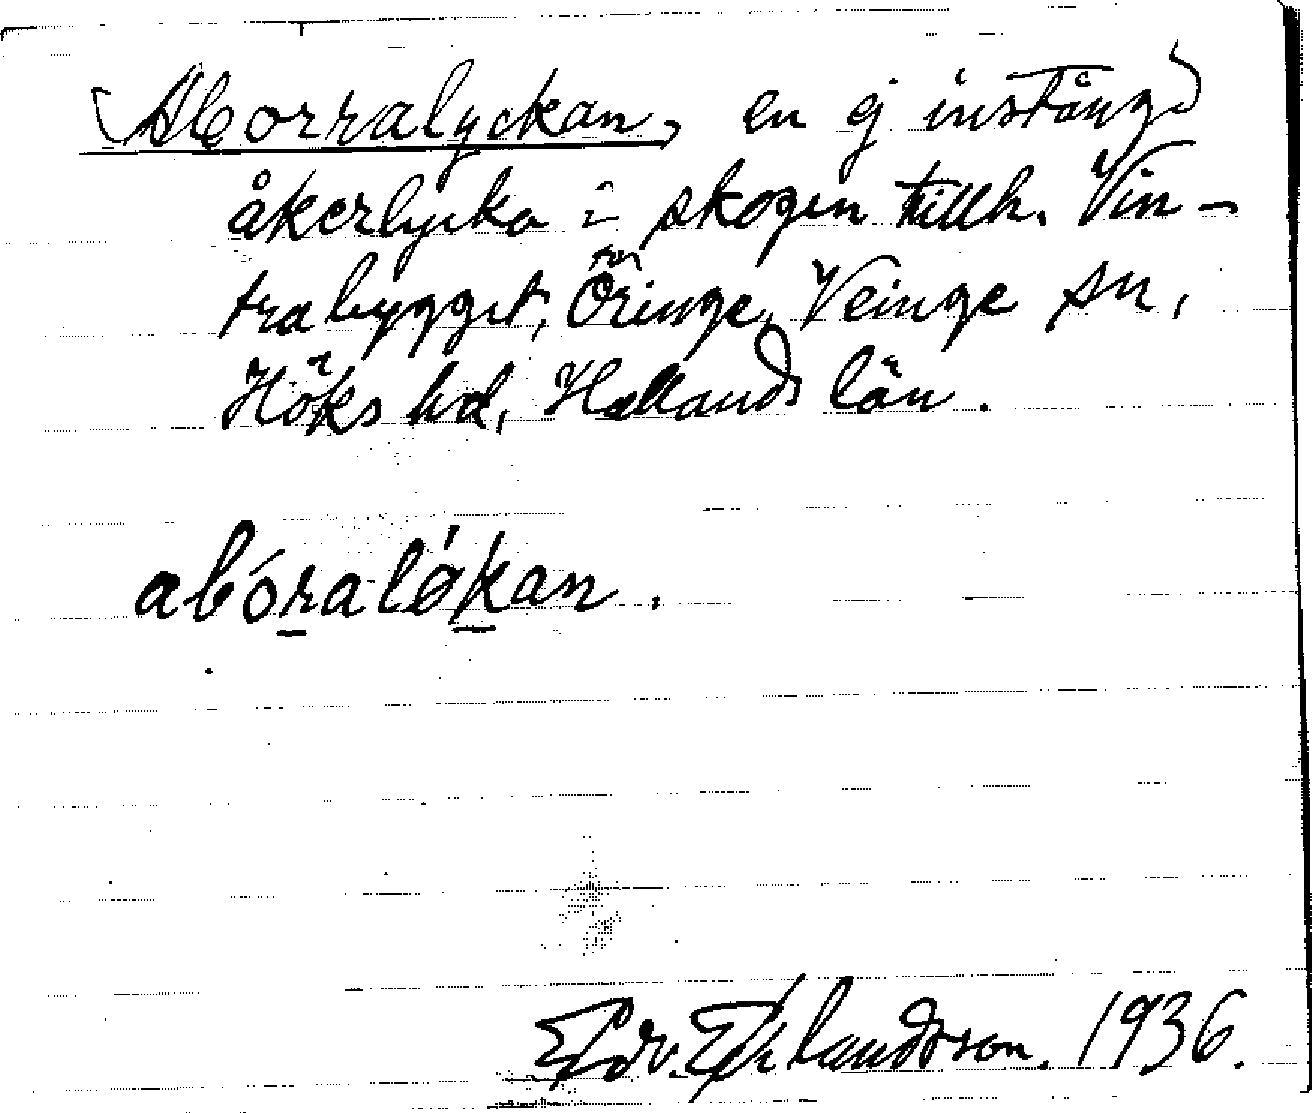 Aborralyckan, en ej instängd
åkerlycka i skogen tillh. Vin-
trabygget, Öringe, Veinge sn,
Höks hd, Hallands län.
abóralǿkan.
Edv. Erlandsson. 1936.